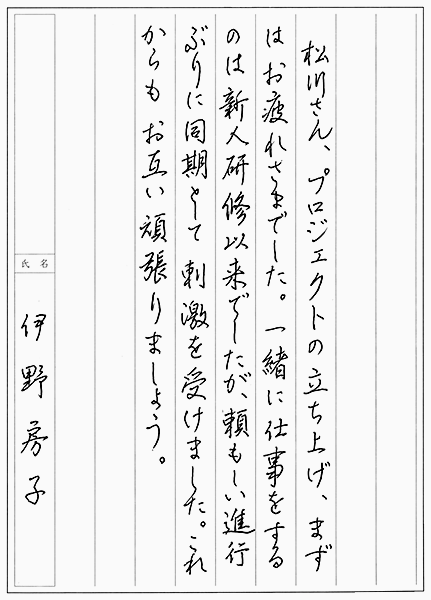 松川さん、プロジェクトの立ち上げ、まず
はお疲れさまでした。一緒に仕事をする
のは新人研修以来でしたが、頼もしい進行
ぶりに同期として刺激を受けました。これ
からもお互い頑張りましょう。
氏名
伊野房子